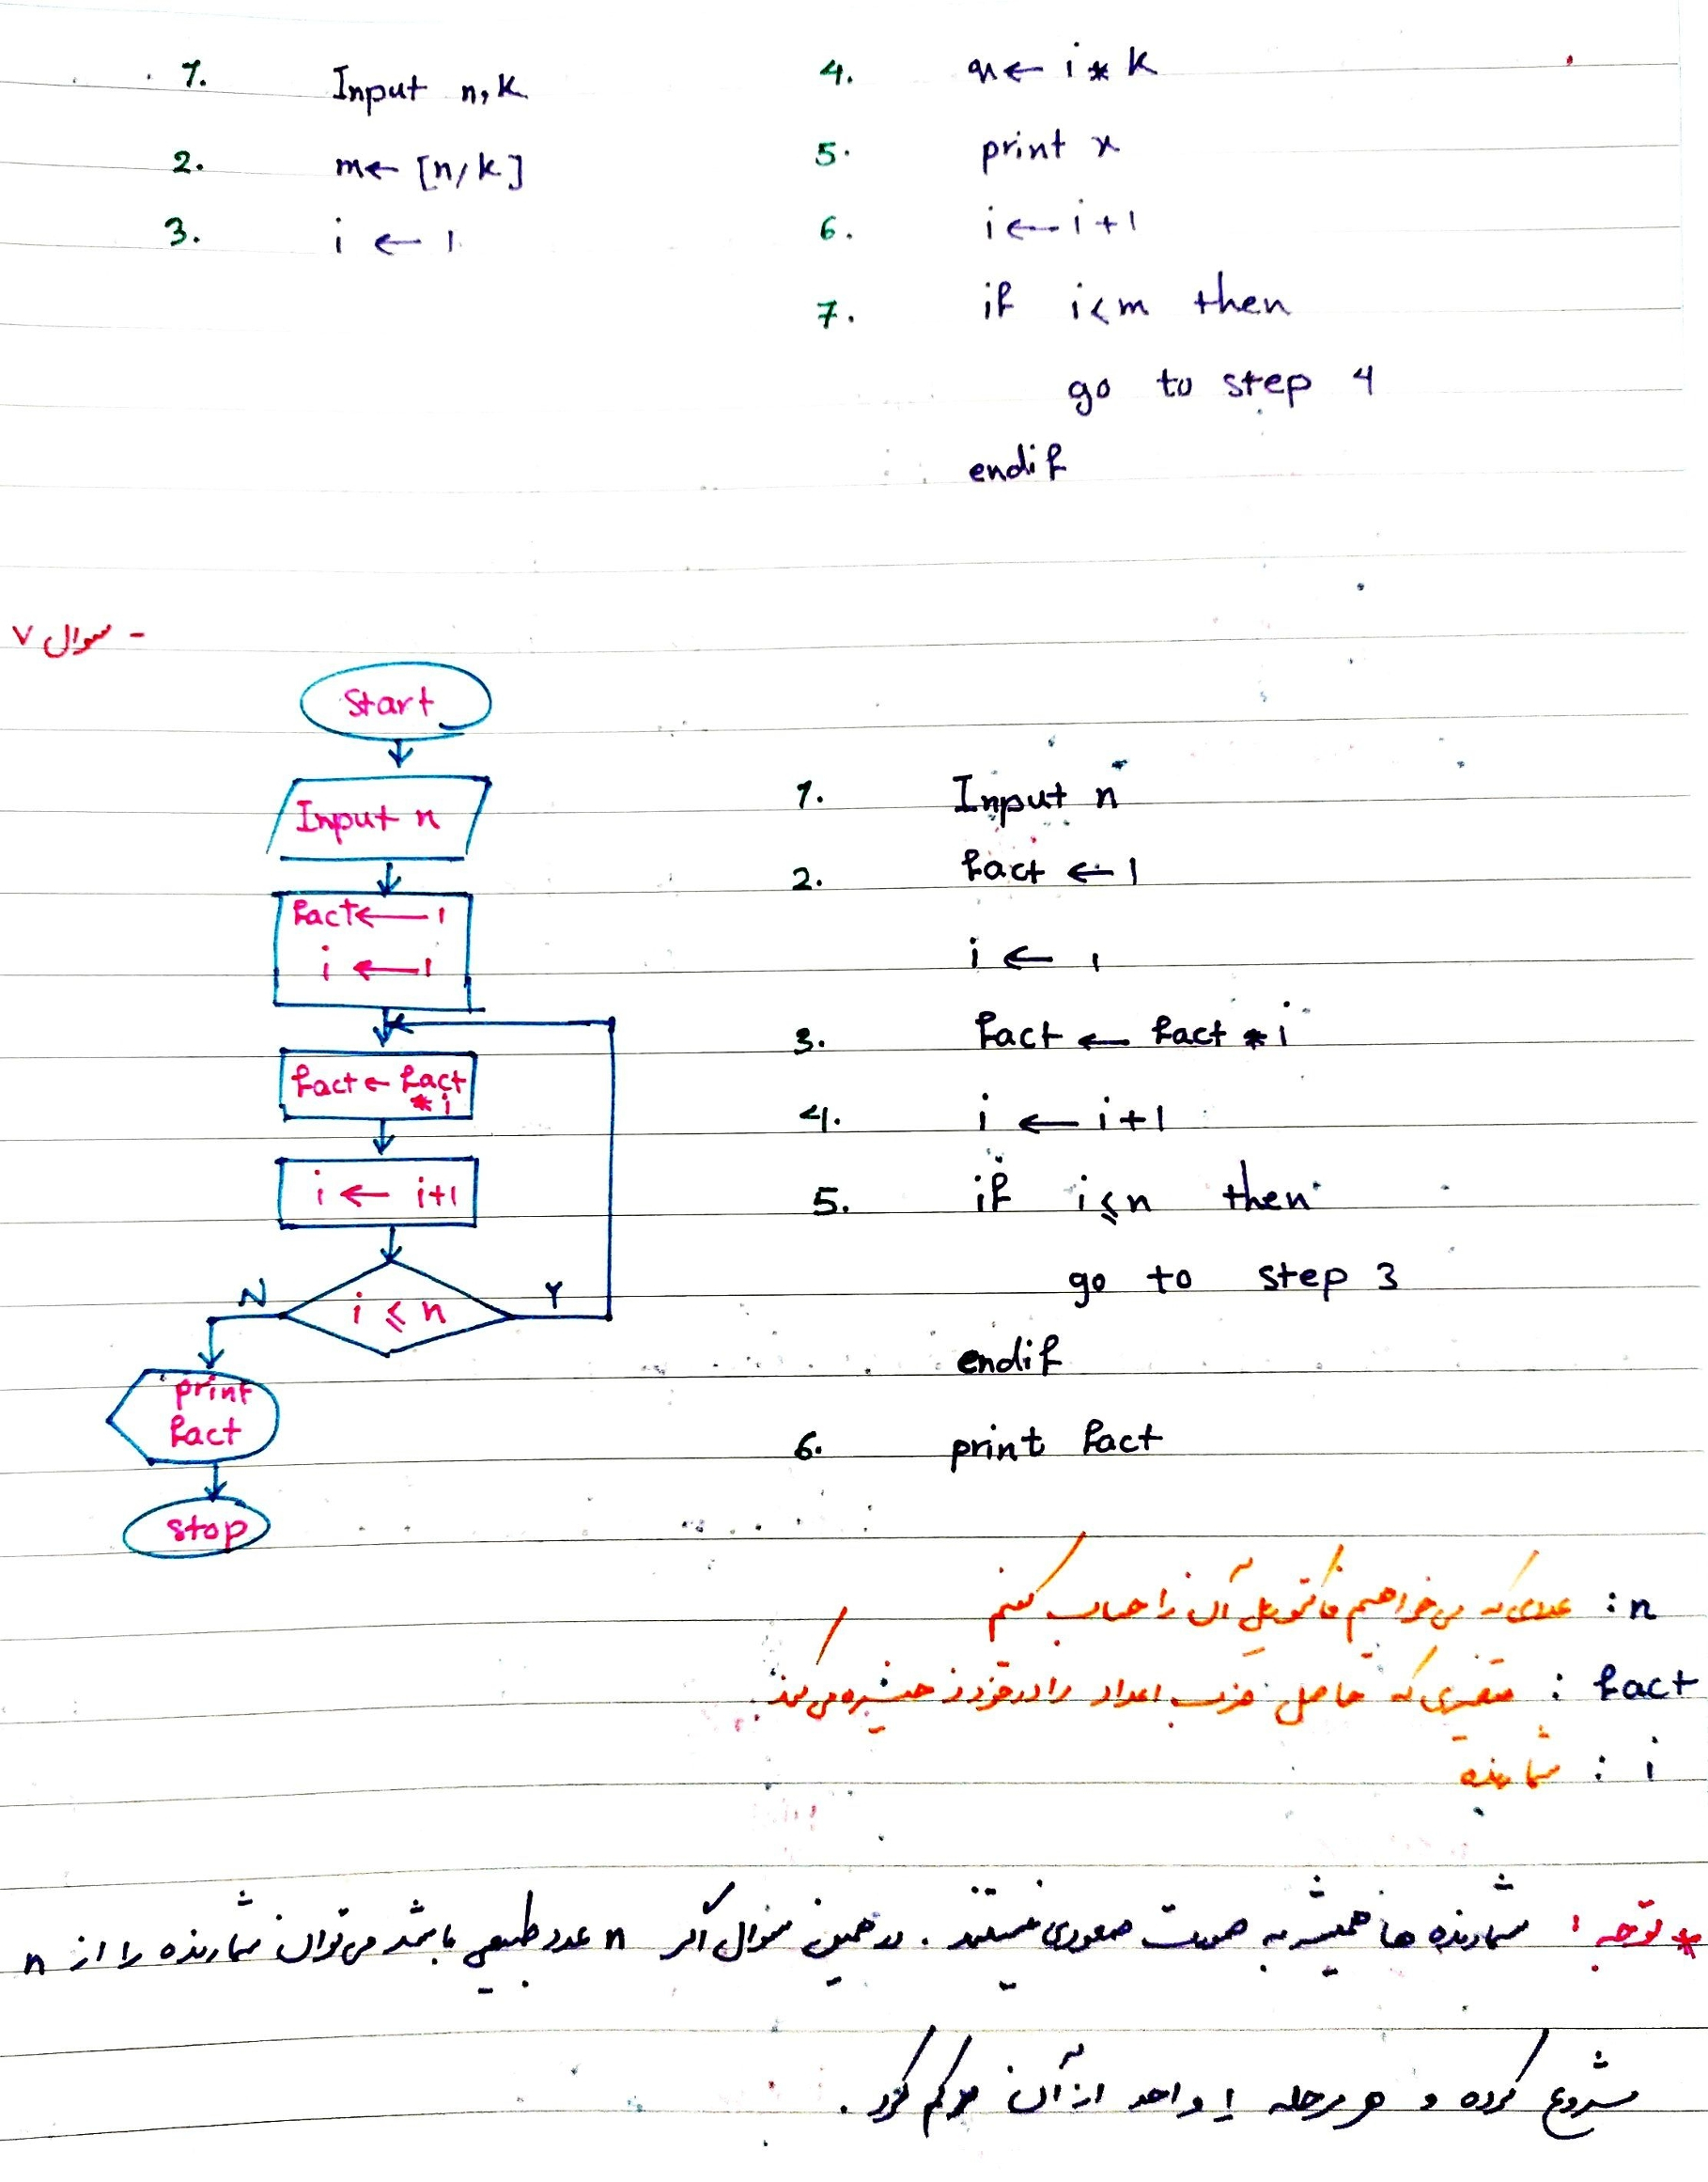 1. Input n, k
2. m ← [n/k]
3. i ← 1
4. x ← i * k
5. print x
6. i ← i+1
7. if i<m then
go to step 4
endif
- سوال ۷
Start
Input n
fact ← 1
i ← 1
fact ← fact
* i
i ← i+1
i ⩽ n
N
Y
print
fact
stop
1. Input n
2. fact ← 1
i ← 1
3. fact ← fact * i
4. i ← i+1
5. if i⩽n then
go to step 3
endif
6. print fact
n : عددی که می خواهیم فاکتوریل آن را حساب کنیم
fact : متغیری که حاصل ضرب اعداد را در خود ذخیره می کند.
i : شمارنده
* توجه : شمارنده ها همیشه به صورت صعودی نیستند . در همین سوال اگر n عدد طبیعی باشد می توان شمارنده را از n
شروع کرده و هر مرحله 1 واحد از آن کم کرد .